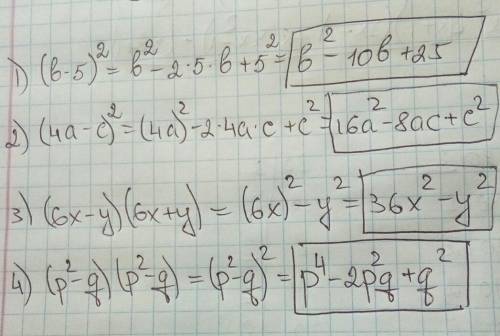 1) (в-5)² = в² - 2·5·в + 5² = в² - 10в + 25
2) (4a-c)² = (4a)² - 2·4a·c + c² = 16a² - 8ac + c²
3) (6x-y)(6x+y) = (6x)² - y² = 36x² - y²
4) (p²-q)(p²-q) = (p²-q)² = p⁴ - 2p²q + q²